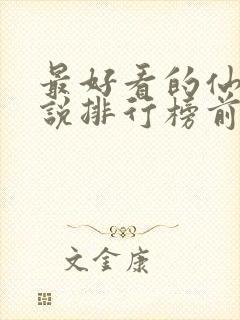 最好看的仙
說排行榜前
文金康